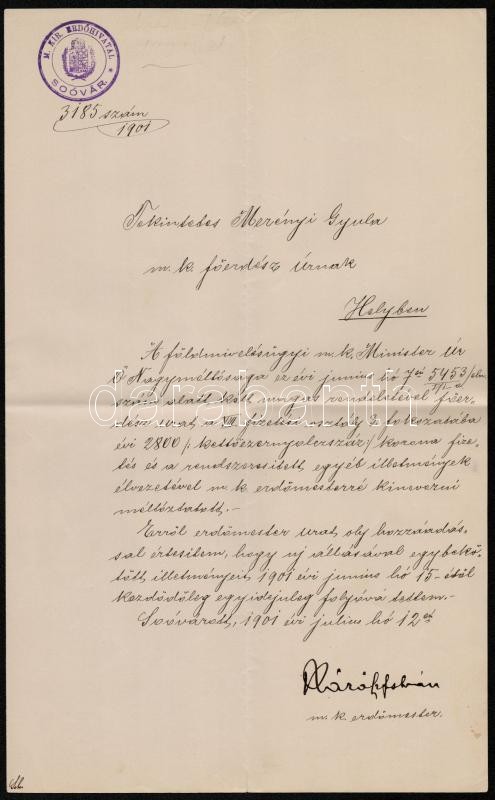 M. KIR. ERDŐHIVATAL
SOÓVÁR *
3185 szám
1901
Tekintetes Merényi Gyula
m. k. főerdész Úrnak
Helyben
A földmivelésügyi m. k. Minister Úr
Ő Nagyméltósága ez évi junius hó 7én 5453/eln.
szám alatt kelt magas rendeletével főer-
dész urat a VIII fizetési osztály 3. fokozatába
évi 2800 /: kettőezernyolcszáz :/ korona fize-
tés és a rendszeresitett egyéb illetmények
élvezetével m. k. erdőmesterré kinevezni
méltóztatott.-
Erről erdőmester urat oly hozzáadás-
sal értesitem, hogy uj állásával egybekö-
tött illetményeit 1901 évi junius hó 15-étől
kezdődőleg egyidejüleg folyóvá tettem.-
Soóvárott, 1901 évi julius hó 12én
István
m. k. erdőmester.
darabanth.com